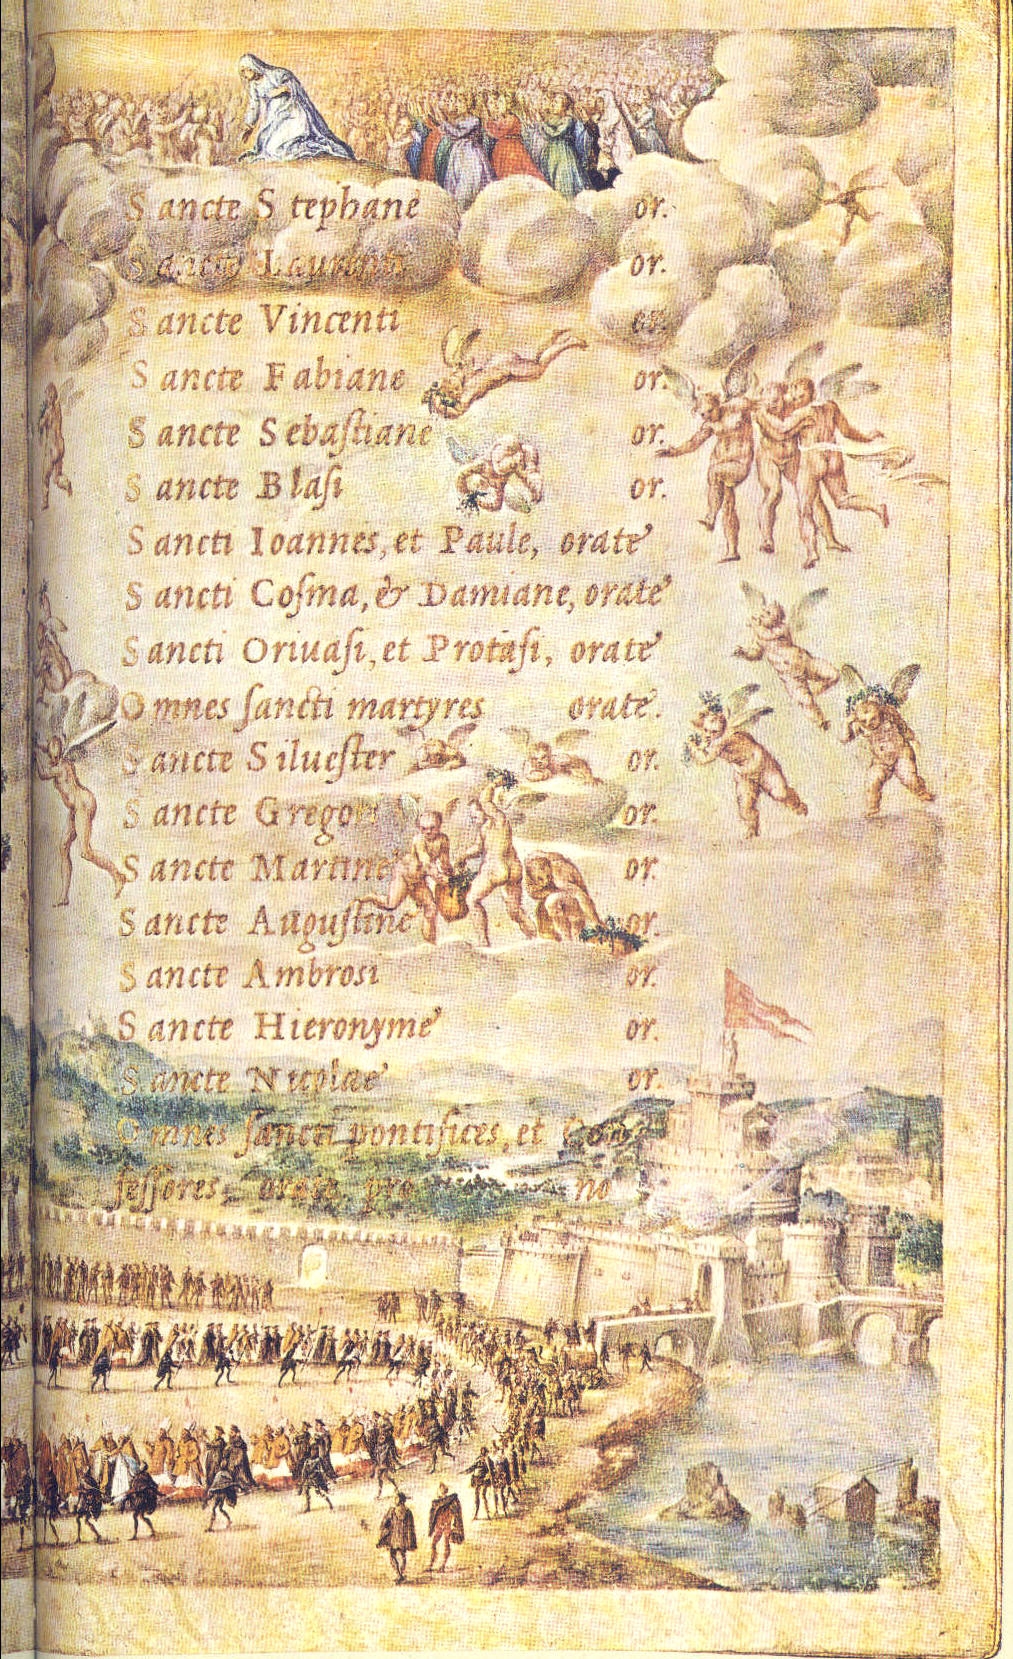 Sancte Stephane or.
Sancte Laurenti or.
Sancte Vincenti or.
Sancte Fabiane or.
Sancte Sebaſtiane or.
Sancte Blaſi or.
Sancti Ioannes, et Paule, orate
Sancti Coſma, & Damiane, orate
Sancti Oriuaſi, et Protaſi, orate
Omnes ſancti martyres orate.
Sancte Silueſter or.
Sancte Gregori or.
Sancte Martine or.
Sancte Auguſtine or.
Sancte Ambrosi or.
Sancte Hieronyme or.
Sancte Nicolae or.
Omnes ſancti pontifices, et Con
feſſores, orate pro no